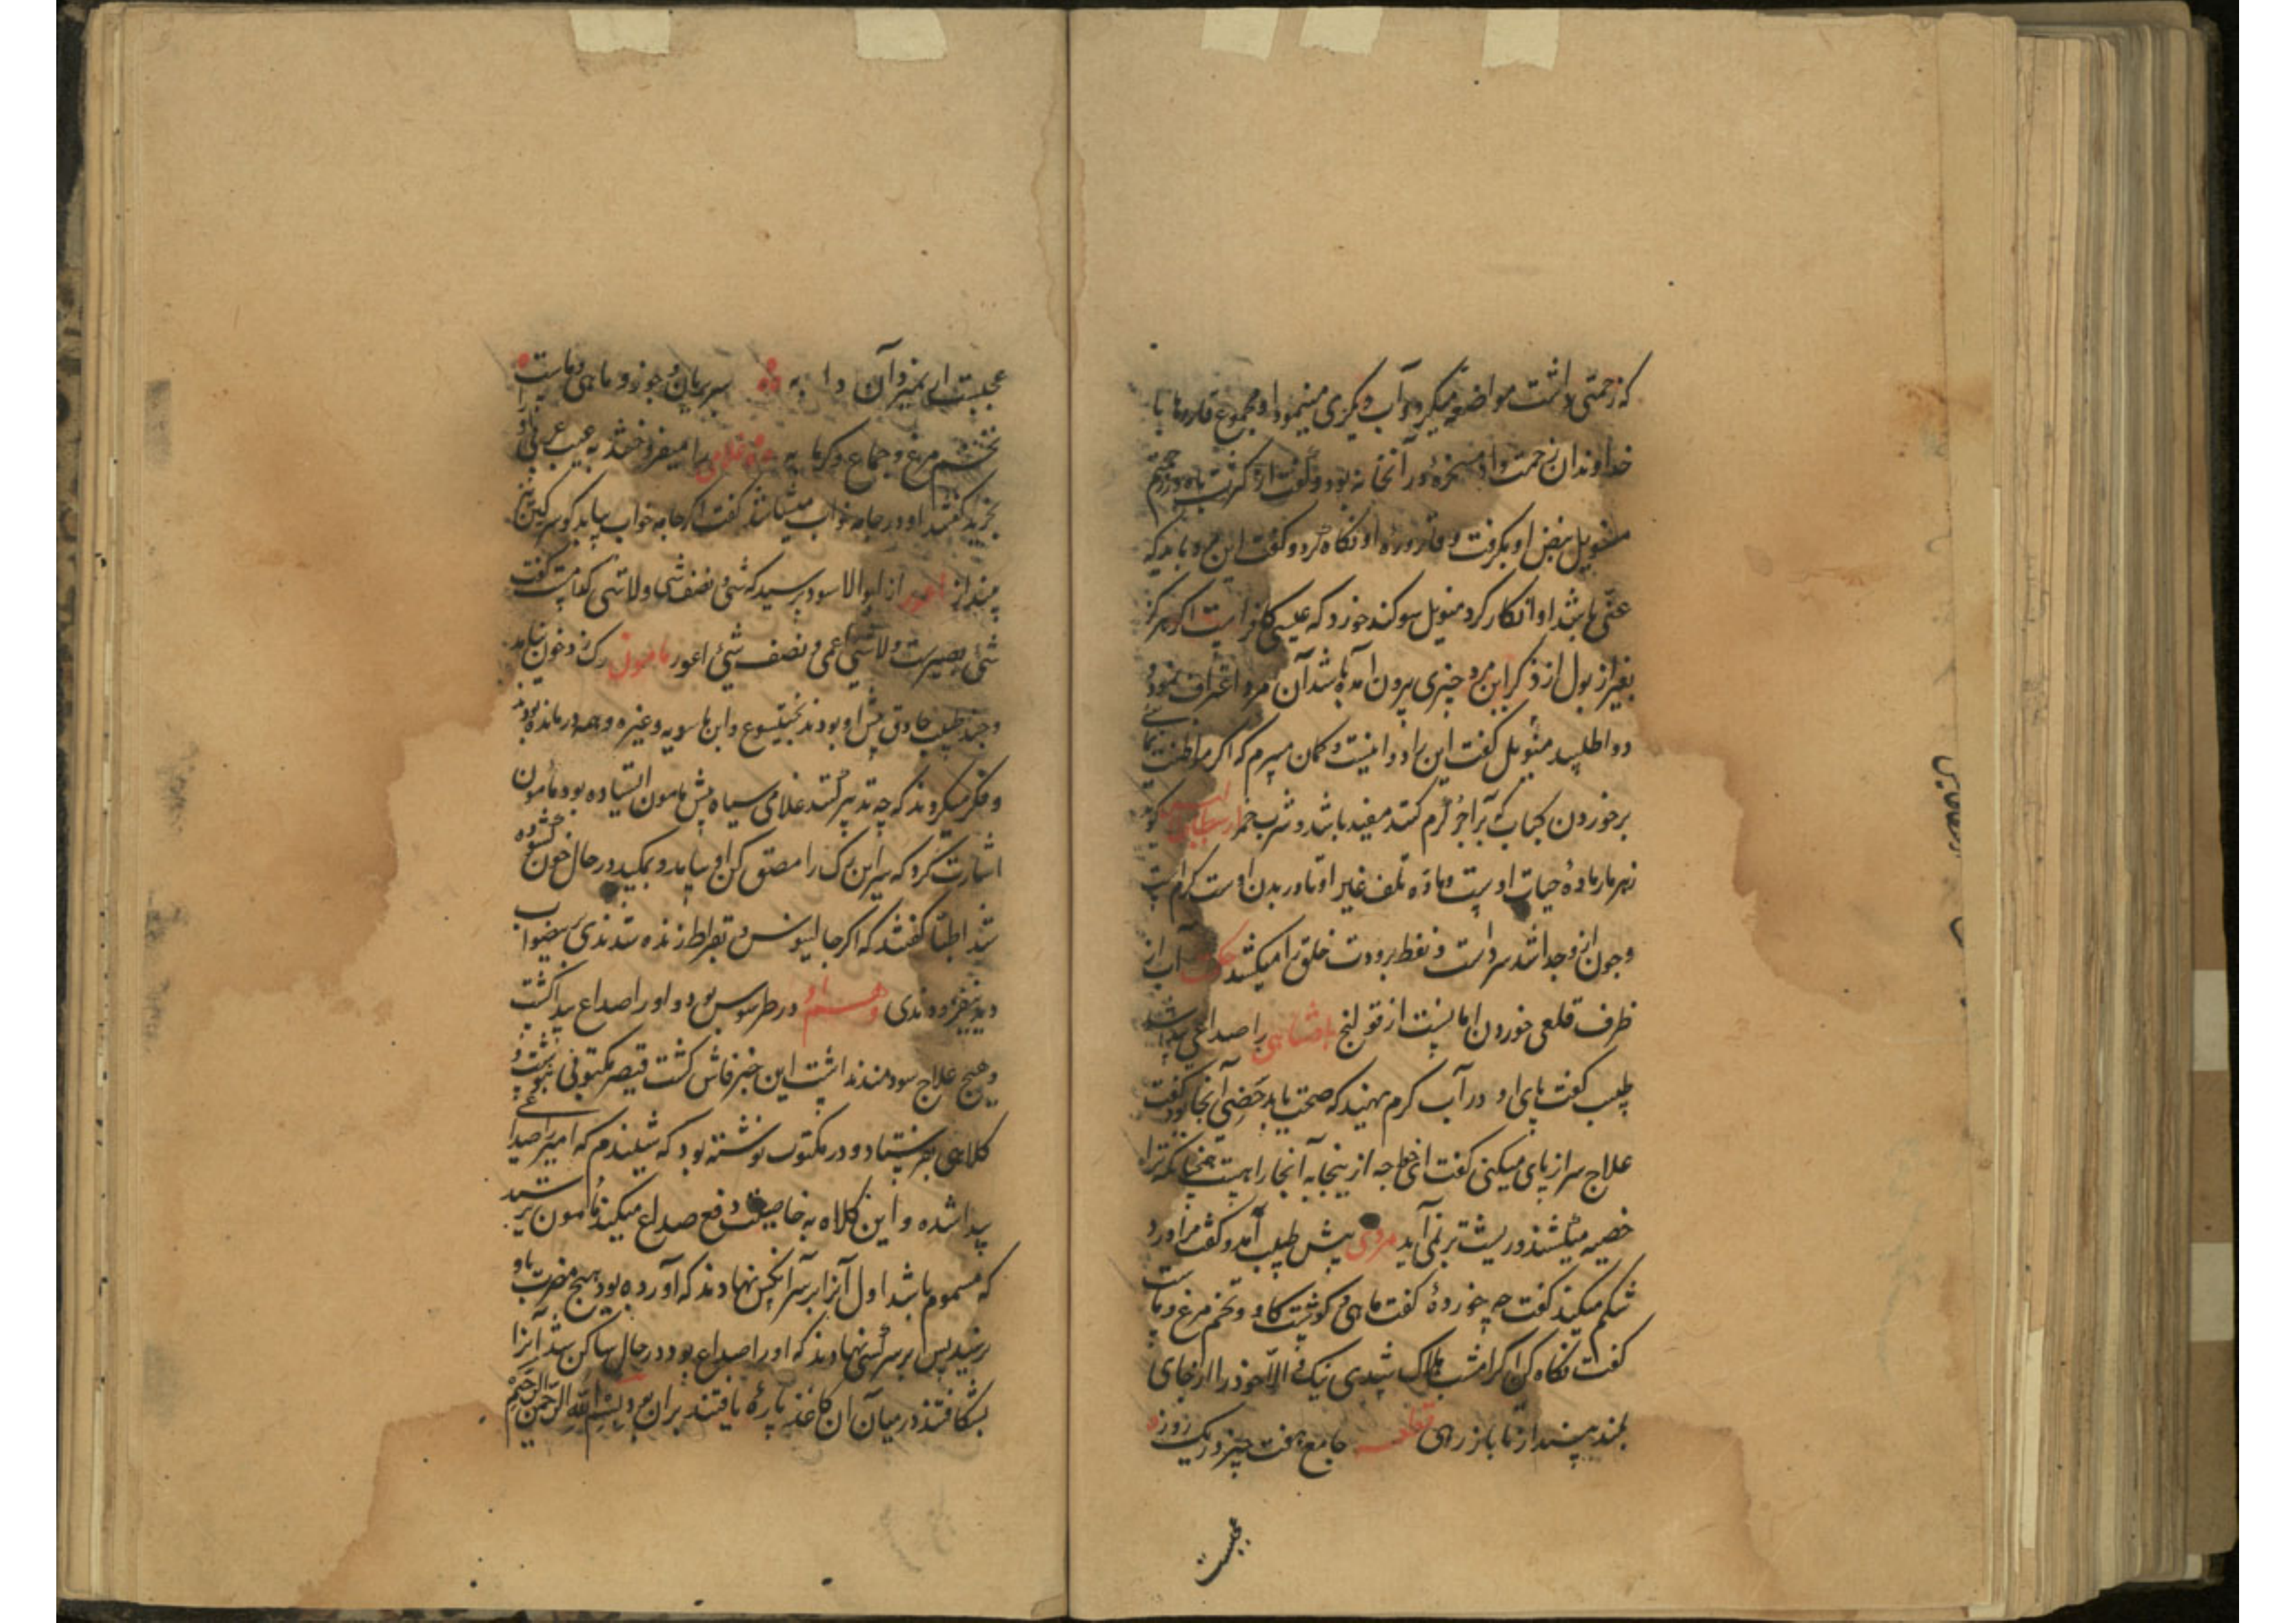 که زحمتی داشت مواضعه میکرد و آب دیگری مینمود او مجموع قاروها با
خداوندان زحمت داد مسخرهٔ در آنخانه بود و گفت
بنض او بگرفت و قاروره او نگاه کرد و گفت این مرد باید که
عنی باشد او انکار کرد سوکند خورد که عیسی کافر است اگر هرگز
بغیر از بول از ذکر این مرد چیزی بیرون آمده باشد آن مرد اعتراف نمود و
دوا طلبید گفت این را دوا نیست و گمان میبرم که اگر
بر خوردن کباب که بر آجر گرم کنند مفید باشد و شرب خمر
زهر مار مادهٔ حیات اوست و ماده تلف غیر او تا در بدن اوست گرم است
و چون از و جدا شد سرد است و بفط برودت خلق را میکشد آب از
ظرف قلعی خوردن امانست از قولنج پادشاهی را صداعی پیدا شد
طبیب گفت پای او در آب گرم بهنید که صحت یابد خصی آنجا بود گفت
علاج سر از پای میکنی گفت ای خواجه از ینجا به آنجا راهست همچنانکه ترا
خصیه میکشند و ریشت بر نمی آید مردی پیش طبیب آمد و گفت مرا درد
شکم میکند گفت چه خوردهٔ گفت ماهی و گوشت گاو و تخم مرغ و ماست
گفت نگاه کن اگر امشب هلاک شدی نیک و الّا خود را از جای
بلند بینداز تا باز رهی جامع هفت چیز در یک روز
عجبست
عجبست بریان و جوز و ماهی و ماست
تخم مرغ و جماع و گرمابه غلامی را میفروختند به عیب عربی او
بخرید گفتند او در جامه خواب میشاشد گفت اگر جامه خواب بیابد گو سرگین نیز
بینداز اعور از ابو الاسود پرسید که شی و نصف شی و لاشی کدامست گفت
شی بصیرست و لاشی اعمی و نصف شی اعور مامون رک زد خون نیامد
و چند طبیب حاذق پیش او بودند بختیشوع و ابن ماسویه و غیره و همه درمانده بودند
و فکر میکردند که چه تدبیر کنند غلامی سیاه پیش مامون ایستاده بود مامون
اشارت کرد که سر این رک را مص کن او بیامد و بمکید در حال خون گشوده
شد اطبا گفتند که اگر جالینوس و بقراط زنده شدندی
نیفزودندی و هم او در طرسوس بود و او را صداع پیدا گشت
و هیچ علاج سودمند نداشت این خبر فاش گشت قیصر مکتوبی نبوشت و
کلاهی بفرستاد و در مکتوب نوشته بود که شنیدم که امیر را صداعی
پیدا شده و این کلاه به خاصیت دفع صداع میکند مامون ترسید
که مسموم باشد اول آنرا بر سر آنکس نهادند که آورده بود هیچ مضرت باو
نرسید پس بر سر کسی نهادند که او را صداع بود در حال ساکن شد آنرا
بشکافتند در میان آن کاغذ پارهٔ یافتند بران مرد بسم الله الرحمن الرحیم